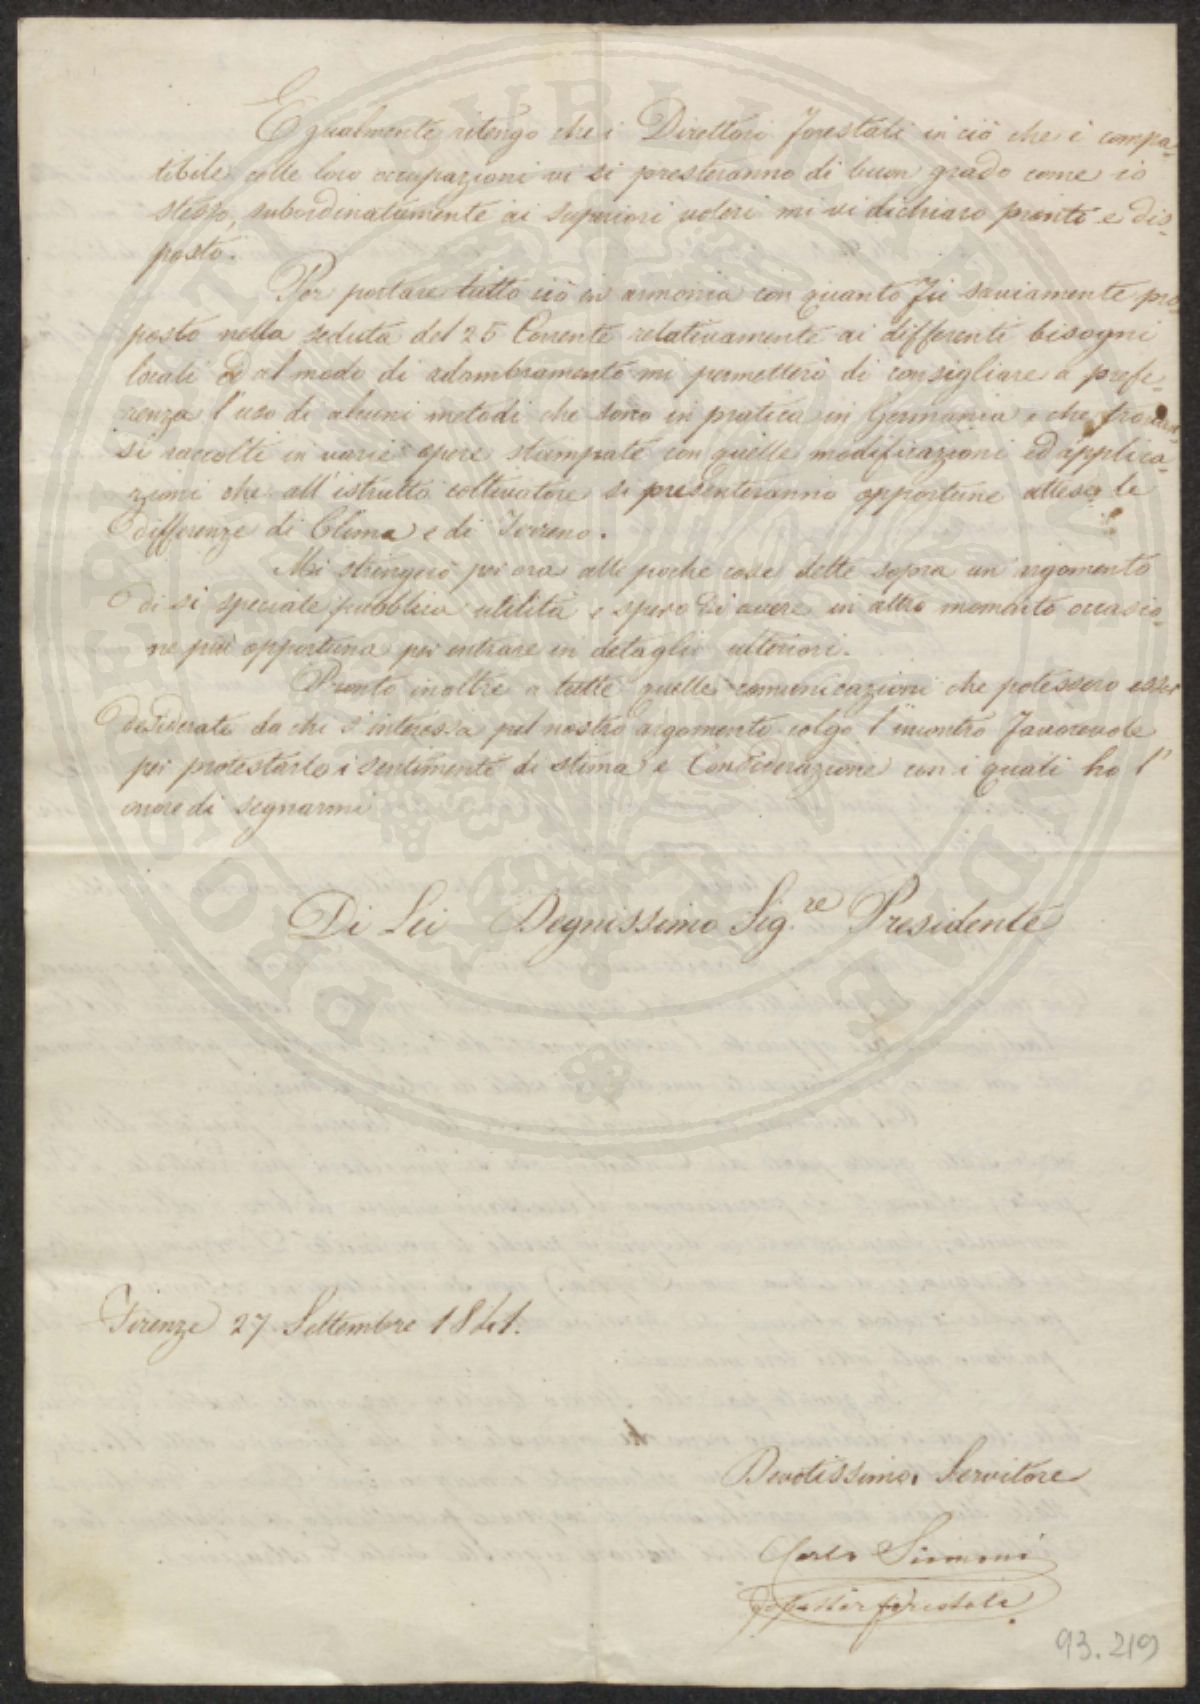 Egualmente ritengo che i Direttori Forestali in ciò che è compa-
tibile colle loro occupazioni vi si presteranno di buon grado come io
stesso, subordinatamente ai superiori voleri mi vi dichiaro pronto e dis-
posto.
Per portare tutto ciò in armonia con quanto fu saviamente pro
posto nella seduta del 25 Corrente relativamente ai differenti bisogni
locali ed al modo di adombramento mi permetterò di consigliare a prefe-
renza l'uso di alcuni metodi che sono in pratica in Germania e che trovan-
si raccolti in varie opere stampate con quelle modificazioni ed applica-
zioni che all'istrutto coltivatore si presenteranno opportune attese le
differenze di Clima e di Terreno.
Mi stringerò per ora alle poche cose dette sopra un argomento
di si speciale pubblica utilità e spero di avere in altro momento occasio-
ne più opportuna per entrare in detaglii ulteriori.
Pronto inoltre a tutte quelle comunicazioni che potessero esser
desiderate da chi s'interessa pel nostro argomento colgo l'incontro favorevole
per protestarle i sentimenti di stima e Considerazione con i quali ho l'
onore di segnarmi
Di Lei Degnissimo Sig.re Presidente
Firenze 27 Settembre 1841.
Devotissimo Servitore
Carlo Simoni
forestale
93.219
PROSPERITATI PUBLICAE AUGENDAE